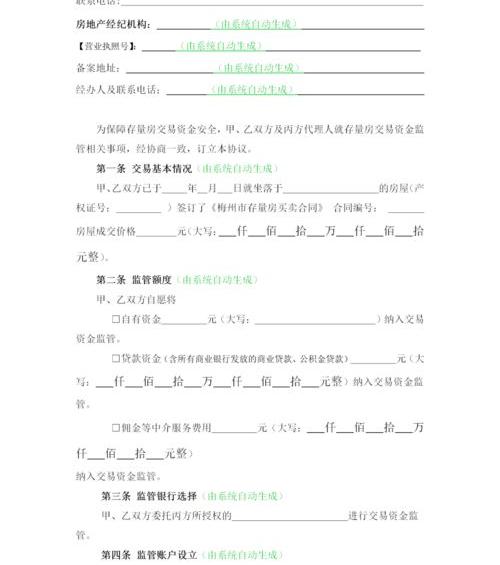 联系电话：____________________
房地产经纪机构：________（由系统自动生成）________
【营业执照号】：________（由系统自动生成）________
备案地址：________（由系统自动生成）________
经办人及联系电话：________（由系统自动生成）________
为保障存量房交易资金安全，甲、乙双方及丙方代理人就存量房交易资金监
管相关事项，经协商一致，订立本协议。
第一条 交易基本情况（由系统自动生成）
甲、乙双方已于_____年__月___日就坐落于____________________的房屋(产
权证号：_________ ）签订了《梅州市存量房买卖合同》 合同编号： _______
房屋成交价格________元（大写：___仟___佰___拾___万___仟___佰___拾
元整)。
第二条 监管额度（由系统自动生成）
甲、乙双方自愿将
□自有资金_________元（大写：________________________）纳入交易
资金监管。
□贷款资金（含所有商业银行发放的商业贷款、公积金贷款）_________元（大
写：___仟___佰___拾___万___仟___佰___拾___元整）纳入交易资金监
管。
□佣金等中介服务费用_________元（大写：___仟___佰___拾___万
仟___佰___拾___元整）
纳入交易资金监管。
第三条 监管银行选择（由系统自动生成）
甲、乙双方委托丙方所授权的_______________________进行交易资金监
管。
第四条 监管账户设立（由系统自动生成）